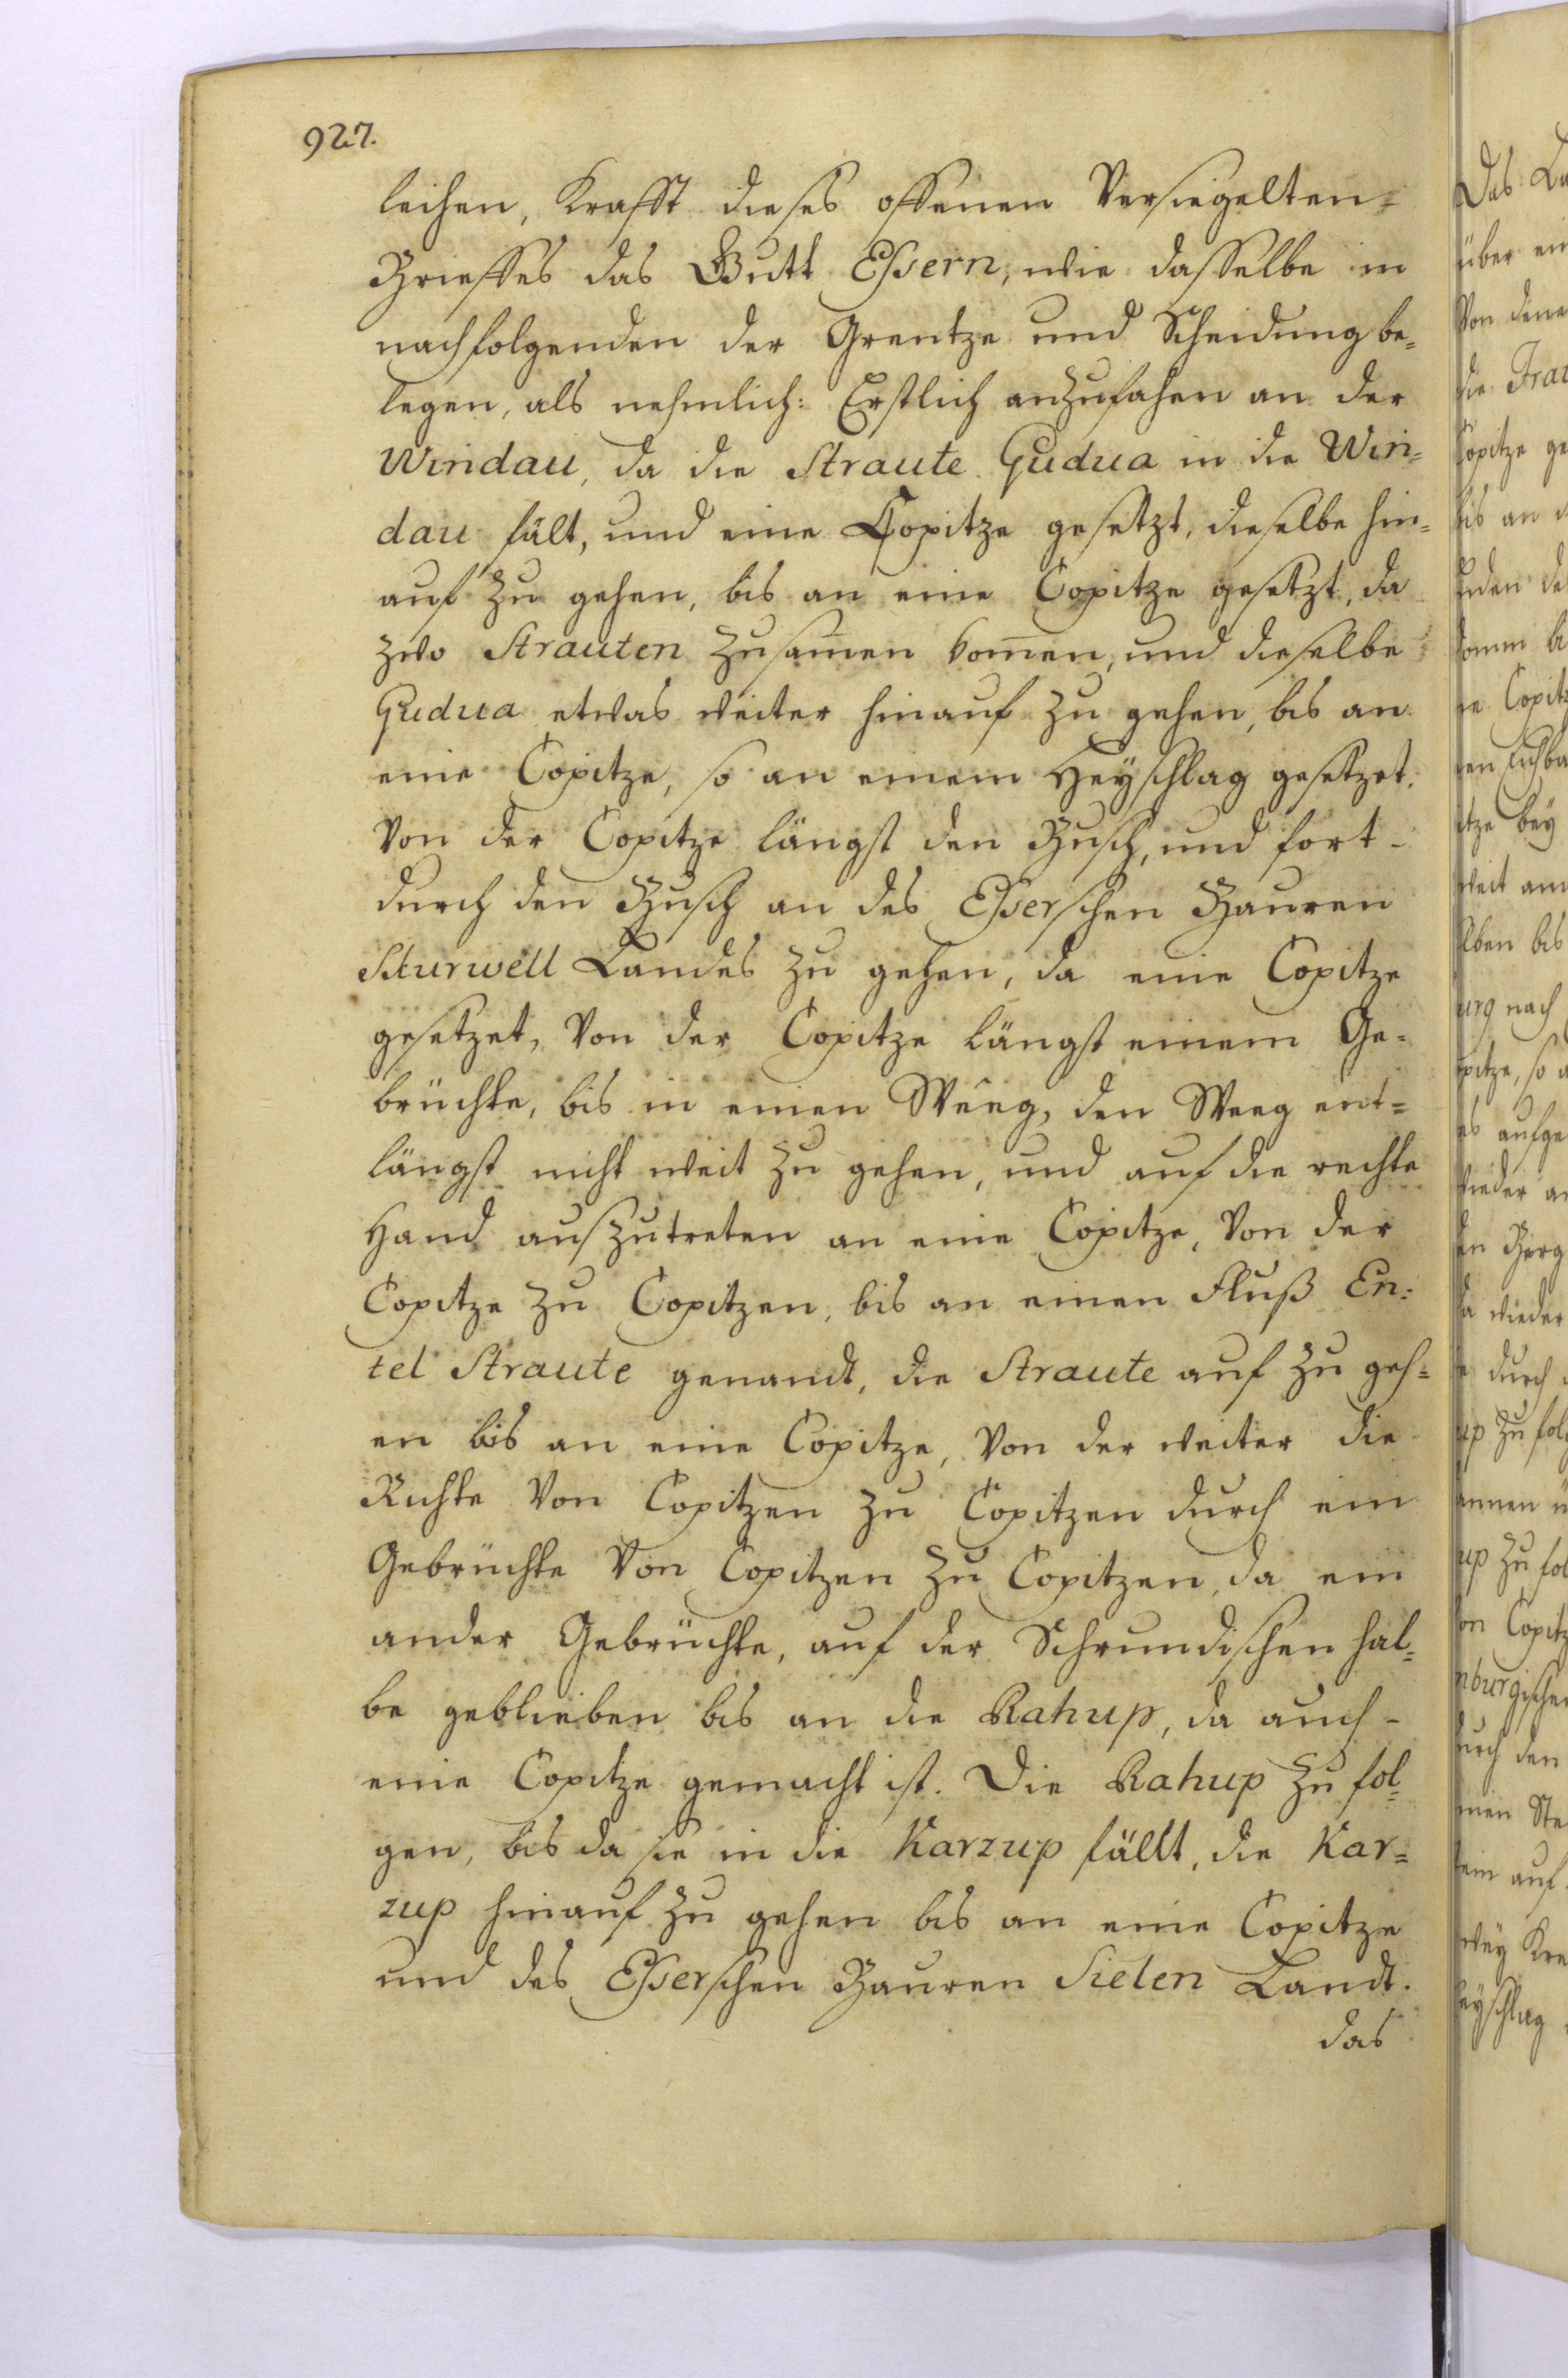 927.
leihen, Krafft dieses offenen Versiegelten=
Brieffes das Gutt Essern, wie dasselbe in
nachfolgenden der Grentze und Scheidung be=
legen, als nehmlich: Erstlich anzufahen an der
Windau, da die Straute Gudua in die Win=
dau fält, und eine Copitze gesetzt, dieselbe hin=
auf zu gehen, bis an eine Copitze gesetzt, da
zwo Strauten zusam̅en kom̅en, und dieselbe
Gudua etwas weiter hinauf zu gehen, bis an
eine Copitze, so an einem Heyschlag gesetzet.
Von der Copitze längst den Busch, und fort-
durch den Busch an des Esserschen Bauren
Sturwell Landes zu gehen, da eine Copitze
gesetzet, Von der Copitze längst einem Ge=
brüchte, bis in einen Weeg, den Weeg ent=
längst nicht weit zu gehen, und auf die rechte
Hand auszutreten an eine Copitze, Von der
Copitze zu Copitzen, bis an einen Fluß En=
tel Straute genandt, die Straute auf zu geh=
en bis an eine Copitze, Von der weiter die
Richte Von Copitzen zu Copitzen durch ein
Gebrüchte Von Copitzen zu Copitzen, da ein
ander Gebrüchte, auf der Schrundischen hal=
be geblieben bis an die Rahup, da auch-
eine Copitze gemacht ist. Die Rahup zu fol=
gen, bis da sie in die Karzup fällt, die Kar=
zup hinauf zu gehen bis an eine Copitze
und des Esserschen Bauren Sielen Landt.
das